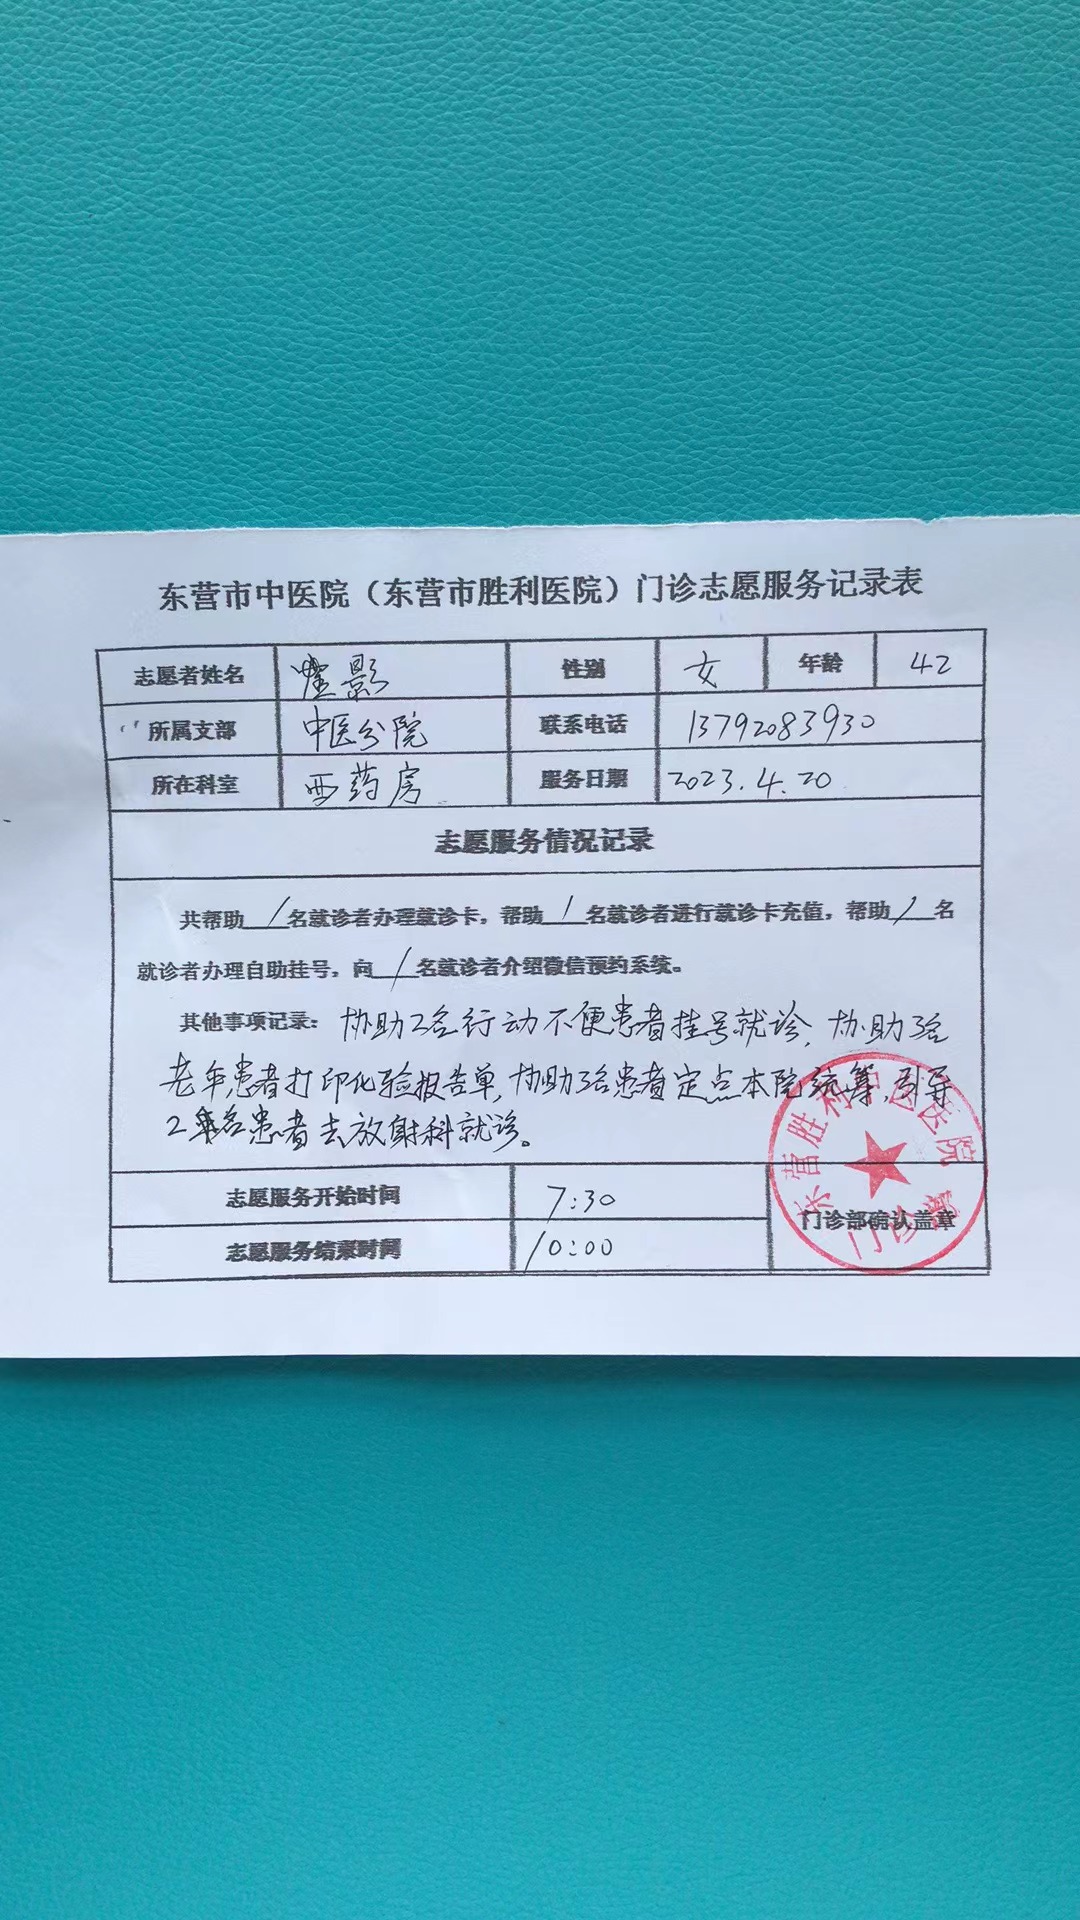 东营市中医院（东营市胜利医院）门诊志愿服务记录表
志愿者姓名 影 性别 女 年龄 42
所属支部 中医分院 联系电话 13792083930
所在科室 西药房 服务日期 2023.4.20
志愿服务情况记录
共帮助/名就诊者办理就诊卡，帮助1名就诊者进行就诊卡充值，帮助1名
就诊者办理自助挂号，向/名就诊者介绍微信预约系统。
其他事项记录：协助2名行动不便患者挂号就诊，协助3名
老年患者打印化验报告单，协助3名患者定点本院统筹，引导
2名患者去放射科就诊。
志愿服务开始时间 7:30
门诊部确认盖章
志愿服务结束时间 10:00
东营胜利中医医院
门诊部